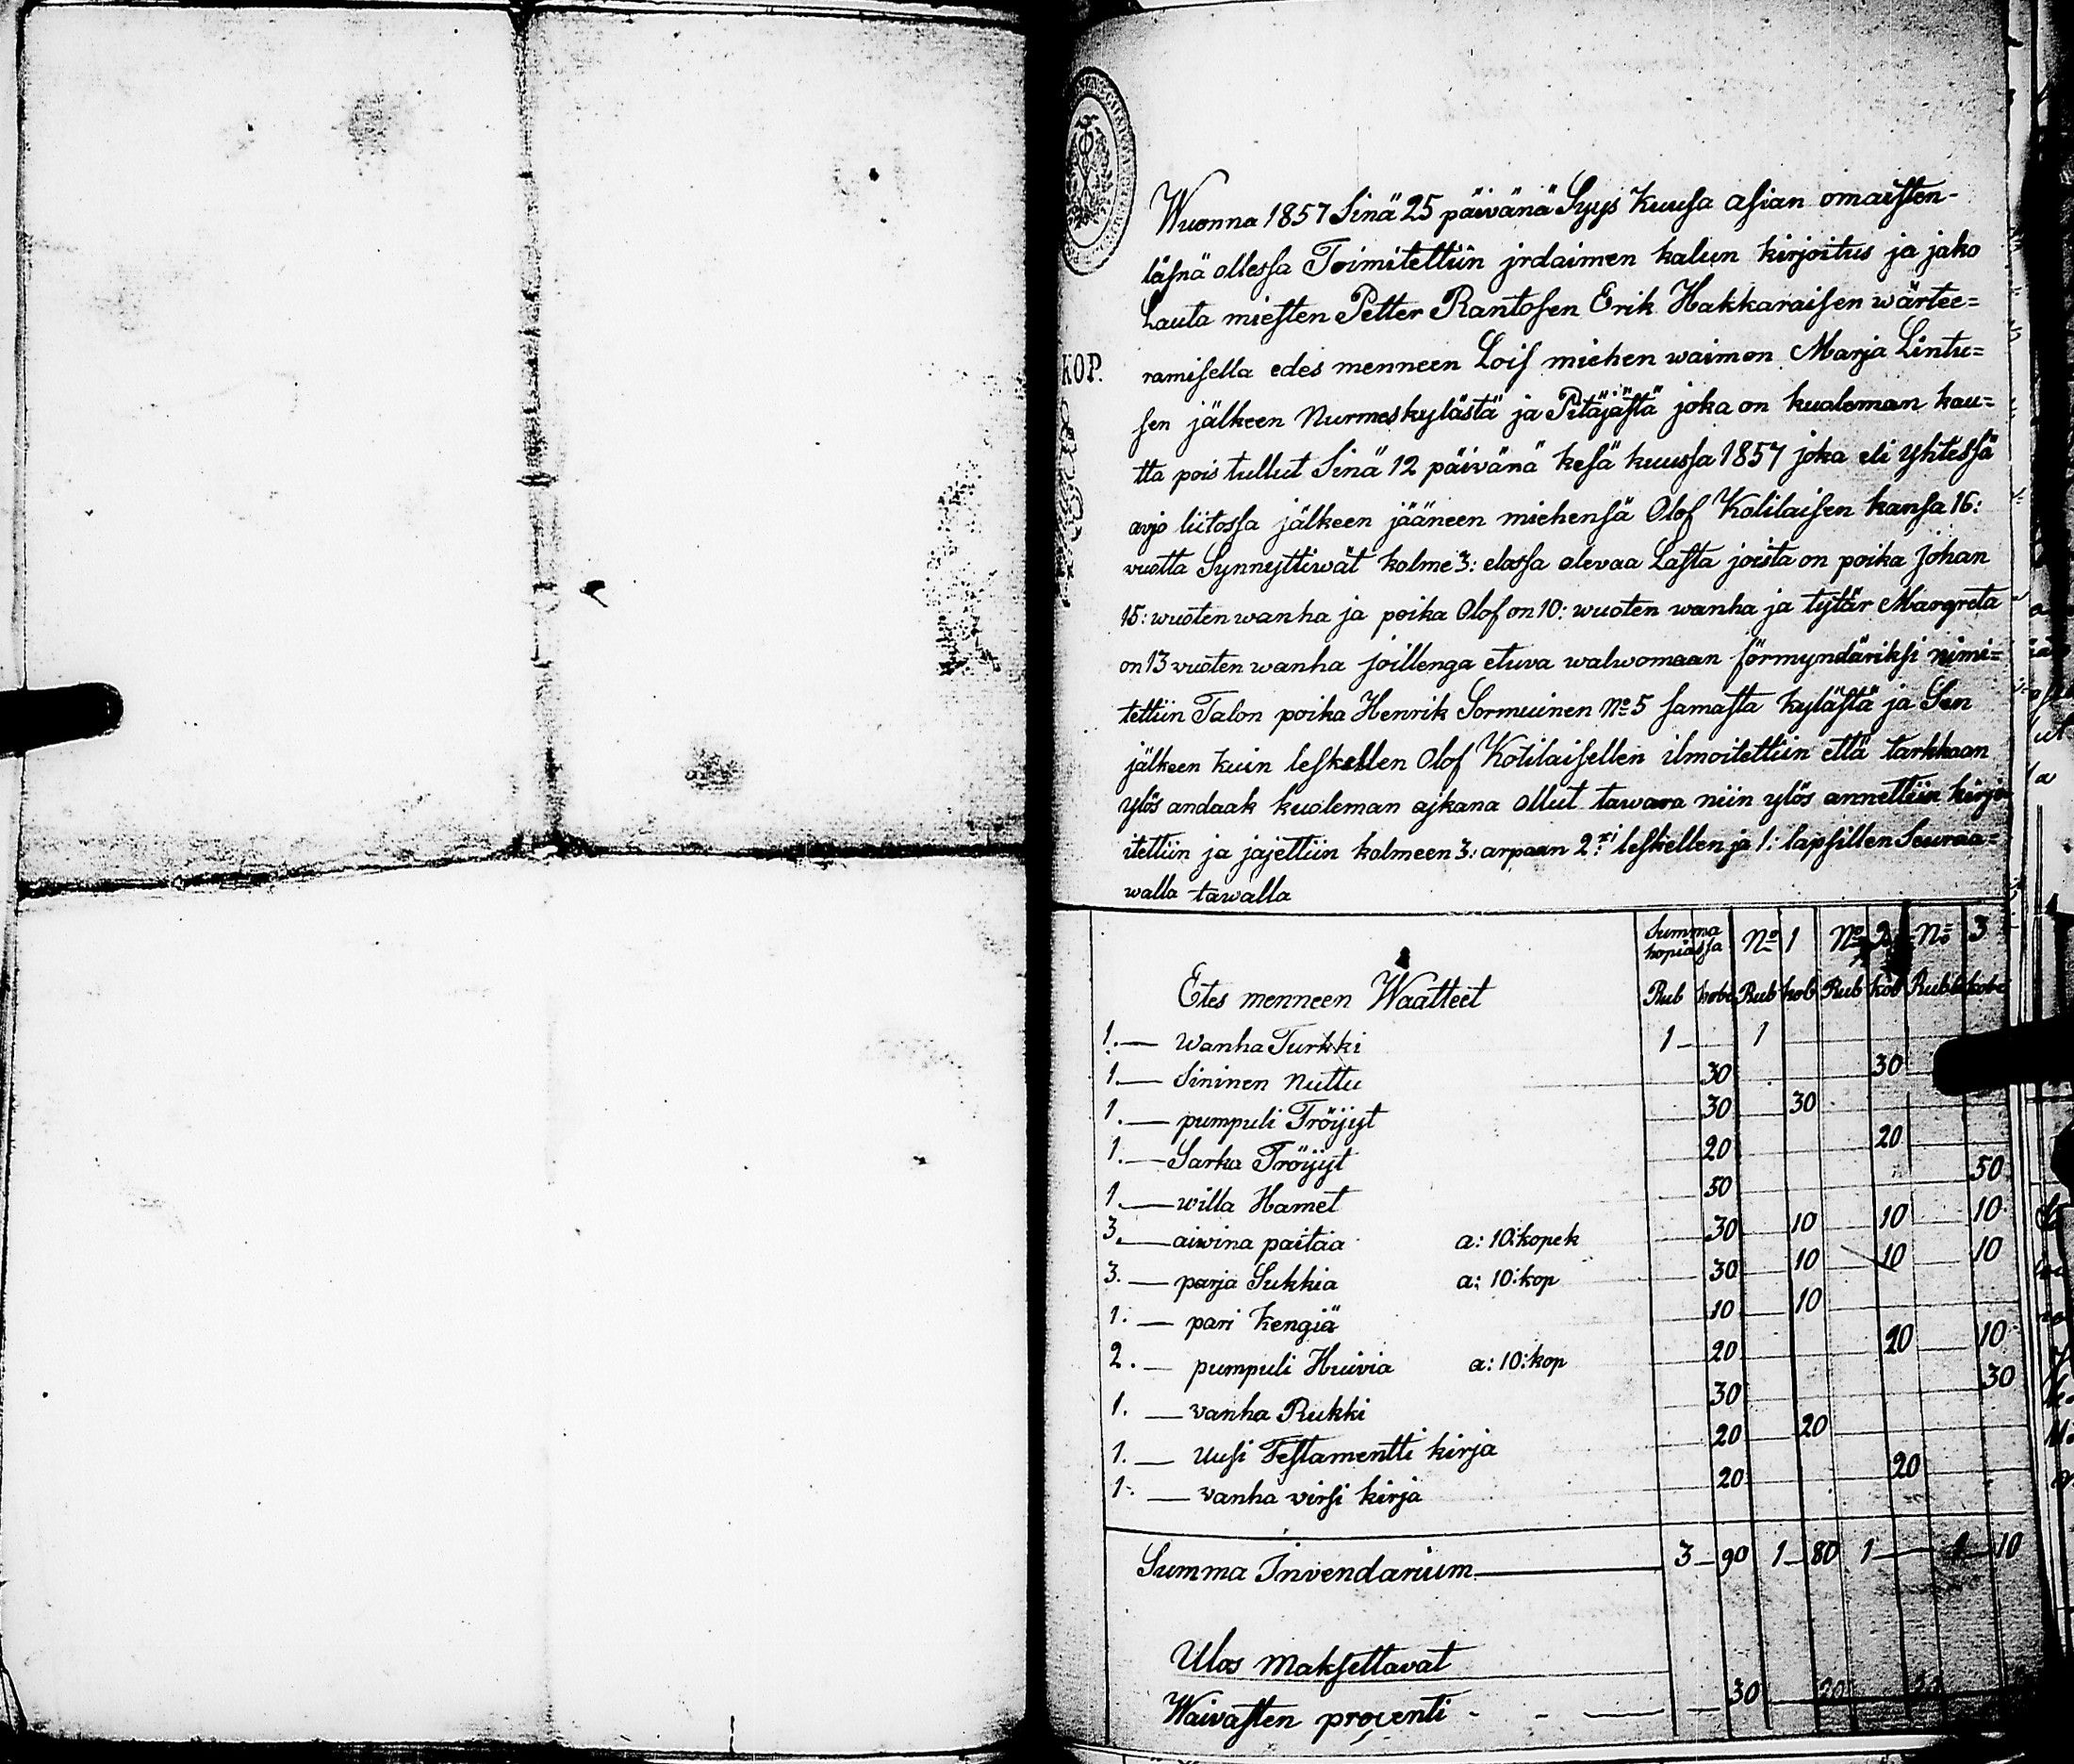 Wuonna 1857 Sinä 25 päivänä Syys kuusa asian omaisten-
läsnä ollessa Toimitettiin jrdaimen kalun kirjoitus ja jako
Lauta miesten Petter Rantosen Erik Hakkaraisen wärtee=
KOP.
ramisella edes menneen Lois miehen waimon Marja Lintu=
sen jälkeen Nurmeskylästä ja Pitäjästä joka on kuoleman kau=
tta pois tullut Sinä 12 päivänä kesä kuussa 1857 joka eli yhtessä
avjo liitossa jälkeen jääneen miehensä Olof Kolilaisen kansa 16:
vuotta Synnyttiwät kolme 3: elassa olevaa Lasta joista on poika Johan
15: wuoten wanha ja poika Olof on 10: wuoten wanha ja tytär Margreta
on 13 vuoten wanha joillenga etuva walwomaan förmyndäriksi nimi=
tettiin Talon poika Henrik Sormuinen No 5 samasta kylästä ja Sen
jälkeen kuin leskellen Olof Kotilaisellen ilmoitettiin että tarkkaan
ylös andaak kuoleman ajkana ollut tawara niin ylös annettiin kirjo
itettiin ja jajettiin kolmeen 3: arpaan 2:xi leskellen ja 1: lapsillen Seuraa=
walla tawalla
Summa kopiassa No 1 No 2 No 3
Etes menneen Waatteet Rub kobe Rub kob Rub kob Rubl kobe
1. — Wanha Turkki 1 — 1
1. — Sininen Nuttu 30 30
1. — pumpuli Tröijyt 30 30
1. — Sarka Tröijyt 20 20
1. — willa Hamet 50 50
3. — aiwina paitaa a: 10: kopek 30 10 10 10
3. — parja Sukkia a: 10: kop 30 10 10 10
1. — pari kengiä 10 10
2. — pumpuli Huivia a: 10: kop 20 10 10
1. — vanha Rukki 30 30
1. — Uusi Testamentti kirja 20 20
1. — vanha virsi kirja 20 20
Summa Invendarium 3 — 90 1 — 80 1 — 1 — 10
Ulos Maksettavat
Waivasten procenti - - — 30 20